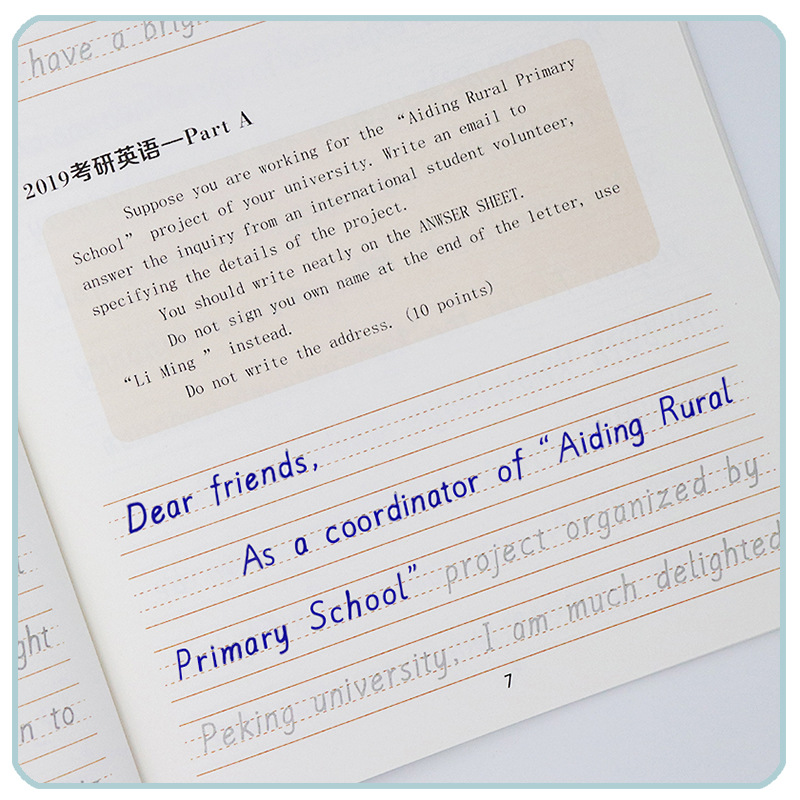 have a brigh
2019考研英语—Part A
Suppose you are working for the “Aiding Rural Primary
School” project of your university. Write an email to
answer the inquiry from an international student volunteer,
specifying the details of the project.
You should write neatly on the ANWSER SHEET.
Do not sign you own name at the end of the letter, use
“Li Ming ” instead.
Do not write the address. (10 points)
Dear friends,
As a coordinator of “Aiding Rural
Primary School” project organized by
Peking university, I am much delighted
7
ght
n to